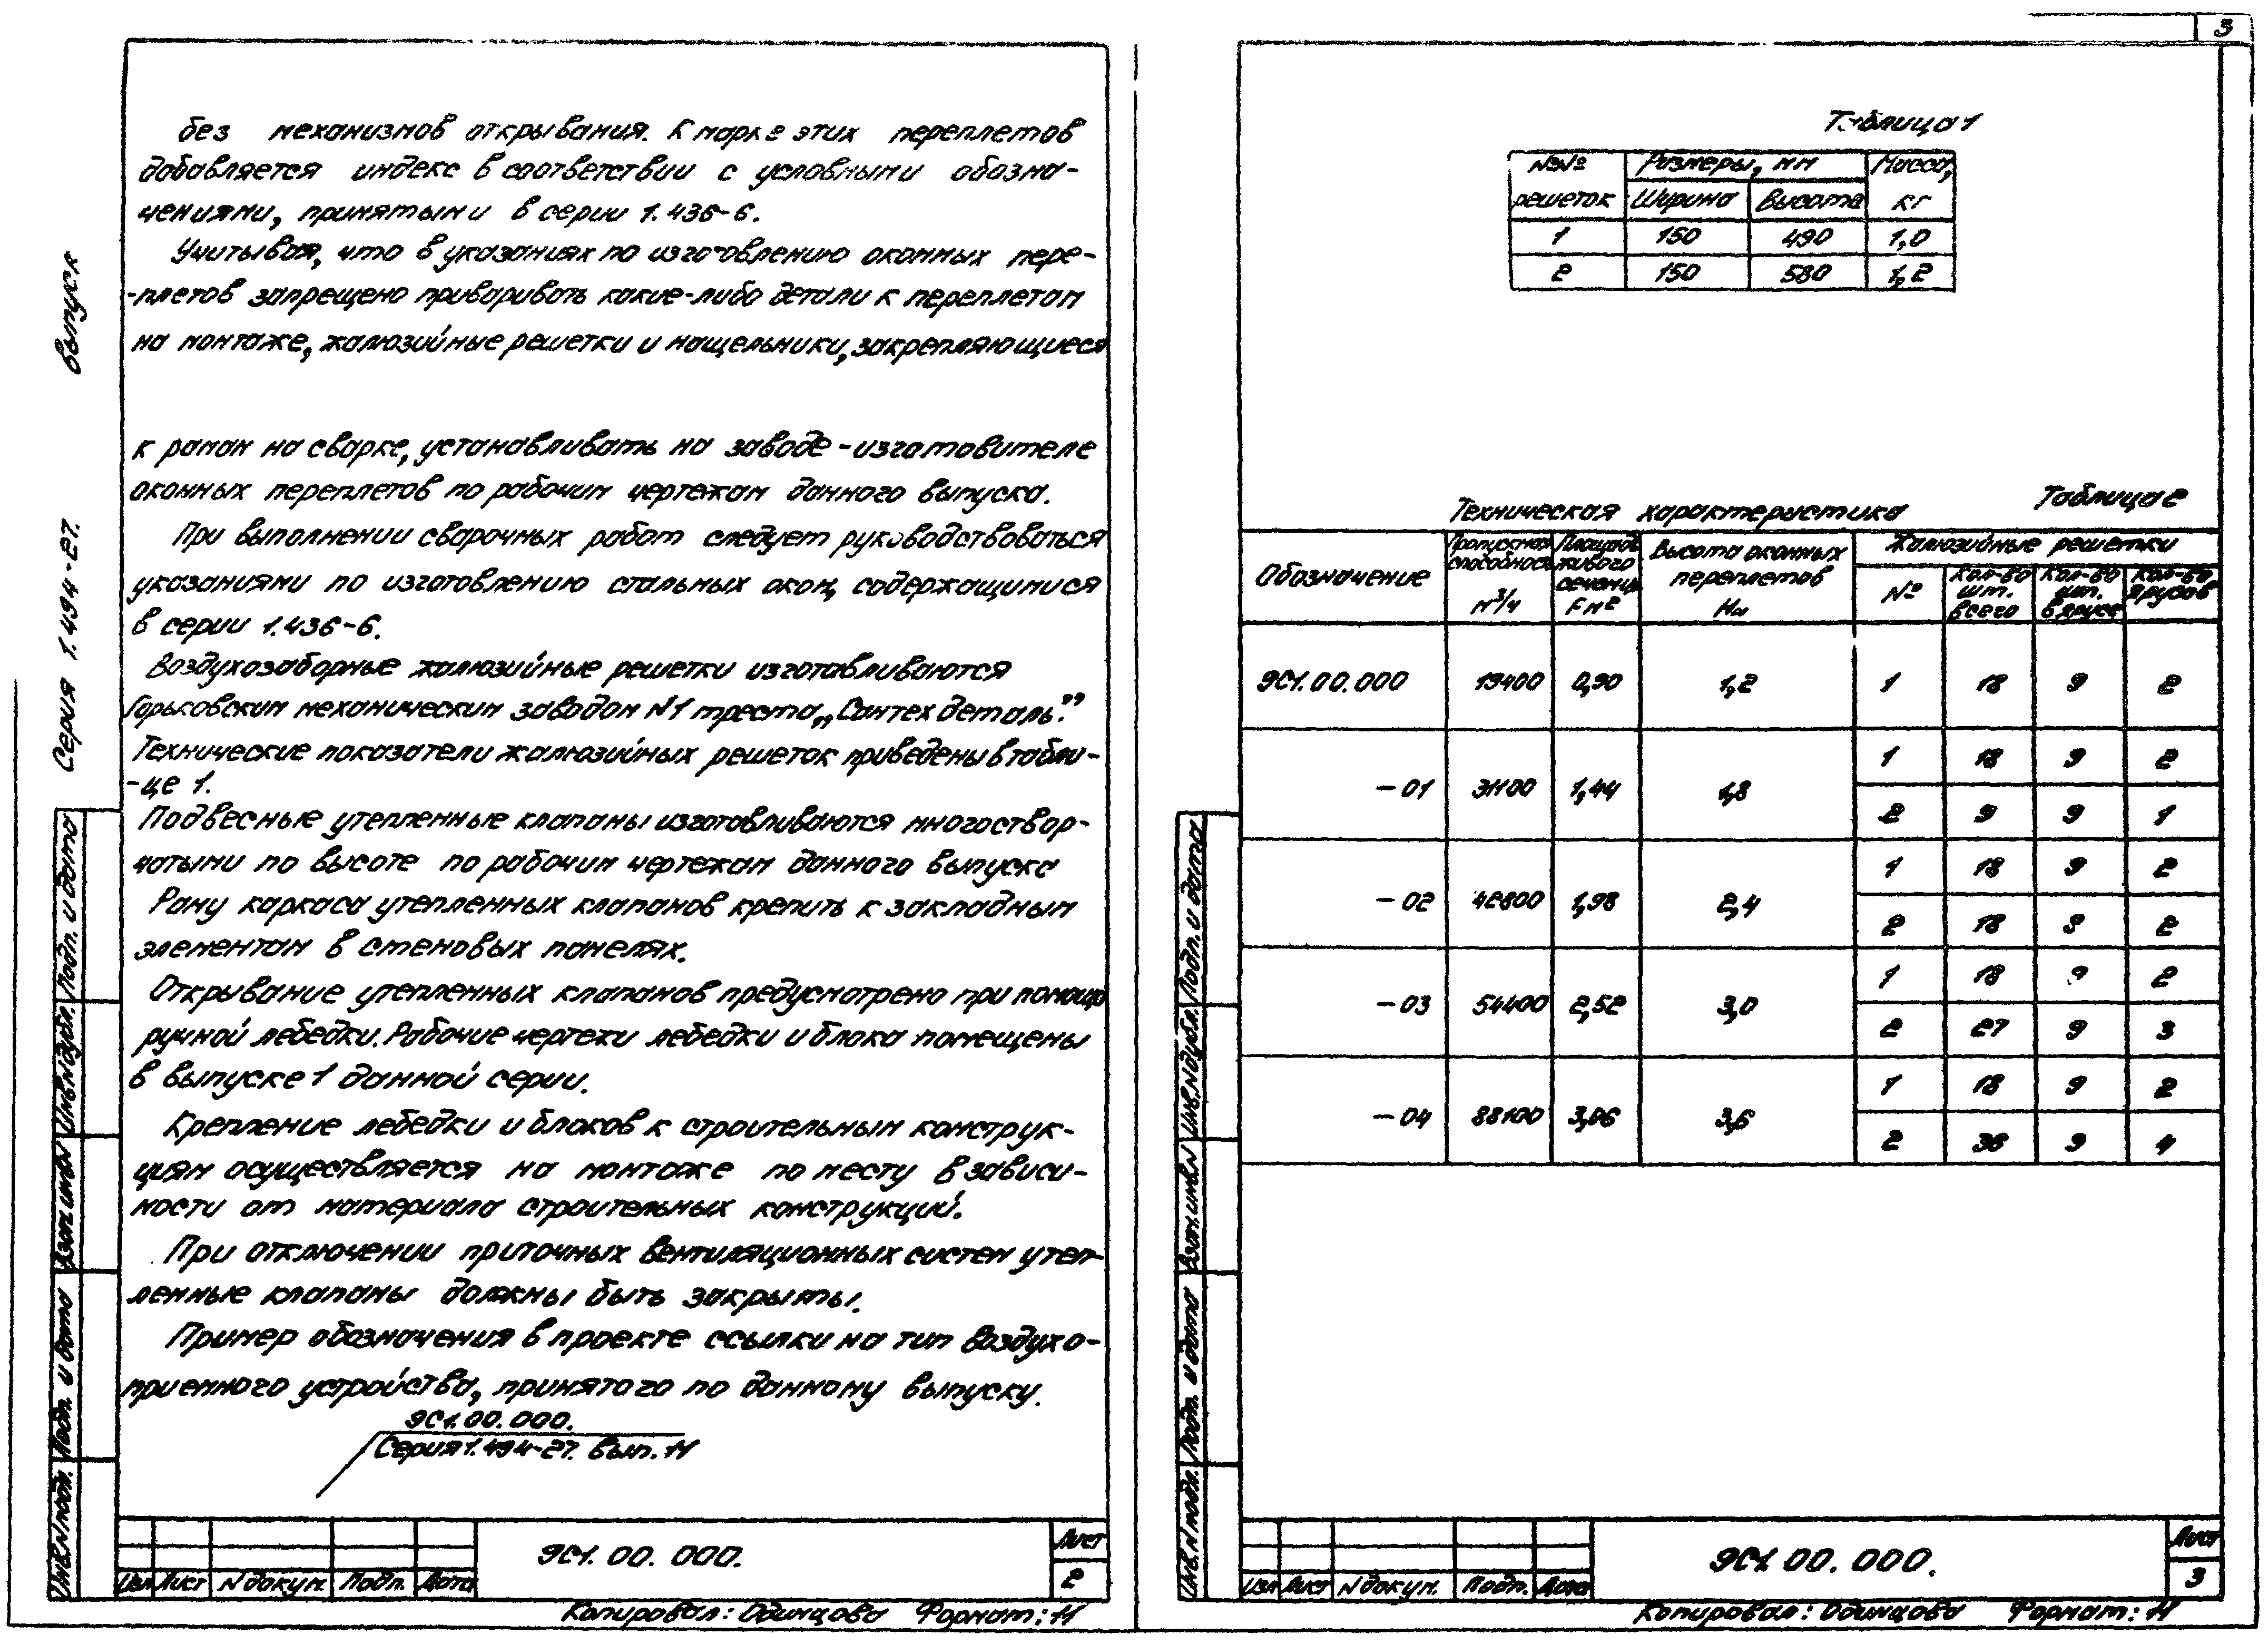 без механизмов открывания. К марке этих переплетов
добавляется индекс в соответствии с условными обозна-
чениями, принятыми в серии 1.436-6.
Учитывая, что в указаниях по изготовлению оконных пере-
-плетов запрещено приваривать какие-либо детали к переплетам
на монтаже, жалюзийные решетки и нащельники, закрепляющиеся
к рамам на сварке, устанавливать на заводе-изготовителе
оконных переплетов по рабочим чертежам данного выпуска.
При выполнении сварочных работ следует руководствоваться
указаниями по изготовлению стальных окон, содержащимися
в серии 1.436-6.
Воздухозаборные жалюзийные решетки изготавливаются
Горьковским механическим заводом N1 треста „Сантехдеталь".
Технические показатели жалюзийных решеток приведены в табли-
-це 1.
Подвесные утепленные клапаны изготовливаются многоствор-
чатыми по высоте по рабочим чертежам данного выпуска
Раму каркаса утепленных клапанов крепить к закладным
элементам в стеновых панелях.
Открывание утепленных клапанов предусмотрено при помощи
ручной лебедки. Рабочие чертежи лебедки и блока помещены
в выпуске 1 данной серии.
Крепление лебедки и блоков к строительным конструк-
циям осуществляется на монтаже по месту в зависи-
мости от материала строительных конструкций.
При отключении приточных вентиляционных систем утеп-
ленные клапаны должны быть закрыты.
Пример обозначения в проекте ссылки на тип воздухо-
приемного устройства, принятого по данному выпуску.
9С1.00.000.
Серия 1.494-27. Вып. 11
Серия 1.494-27. Выпуск
Инв.N подл. Подп. и дата Взам. инв.N Инв.N дубл. Подп. и дата
Изм Лист N докум. Подп. Дата
9С1. 00. 000.
Лист
2
Копировал: Одинцова Формат: 11
3
Таблица 1
№№ решеток Размеры, мм Масса, кг
Ширина Высота
1 150 490 1,0
2 150 580 1,2
Техническая характеристика Таблица 2
Обозначение Пропускная способность м³/ч Площадь живого сечения F м² Высота оконных переплетов Нм Жалюзийные решетки
№ Кол-во шт. всего Кол-во шт. в ярусе Кол-во ярусов
9С1.00.000 19400 0,90 1,2 1 18 9 2
-01 31100 1,44 1,8 1 18 9 2
2 9 9 1
-02 42800 1,98 2,4 1 18 9 2
2 18 9 2
-03 54400 2,52 3,0 1 18 9 2
2 27 9 3
-04 88100 3,06 3,6 1 18 9 2
2 36 9 4
Инв.N подл. Подп. и дата Взам. инв.N Инв.N дубл. Подп. и дата
Изм Лист N докум. Подп. Дата
9С1. 00. 000.
Лист
3
Копировал: Одинцова Формат: 11